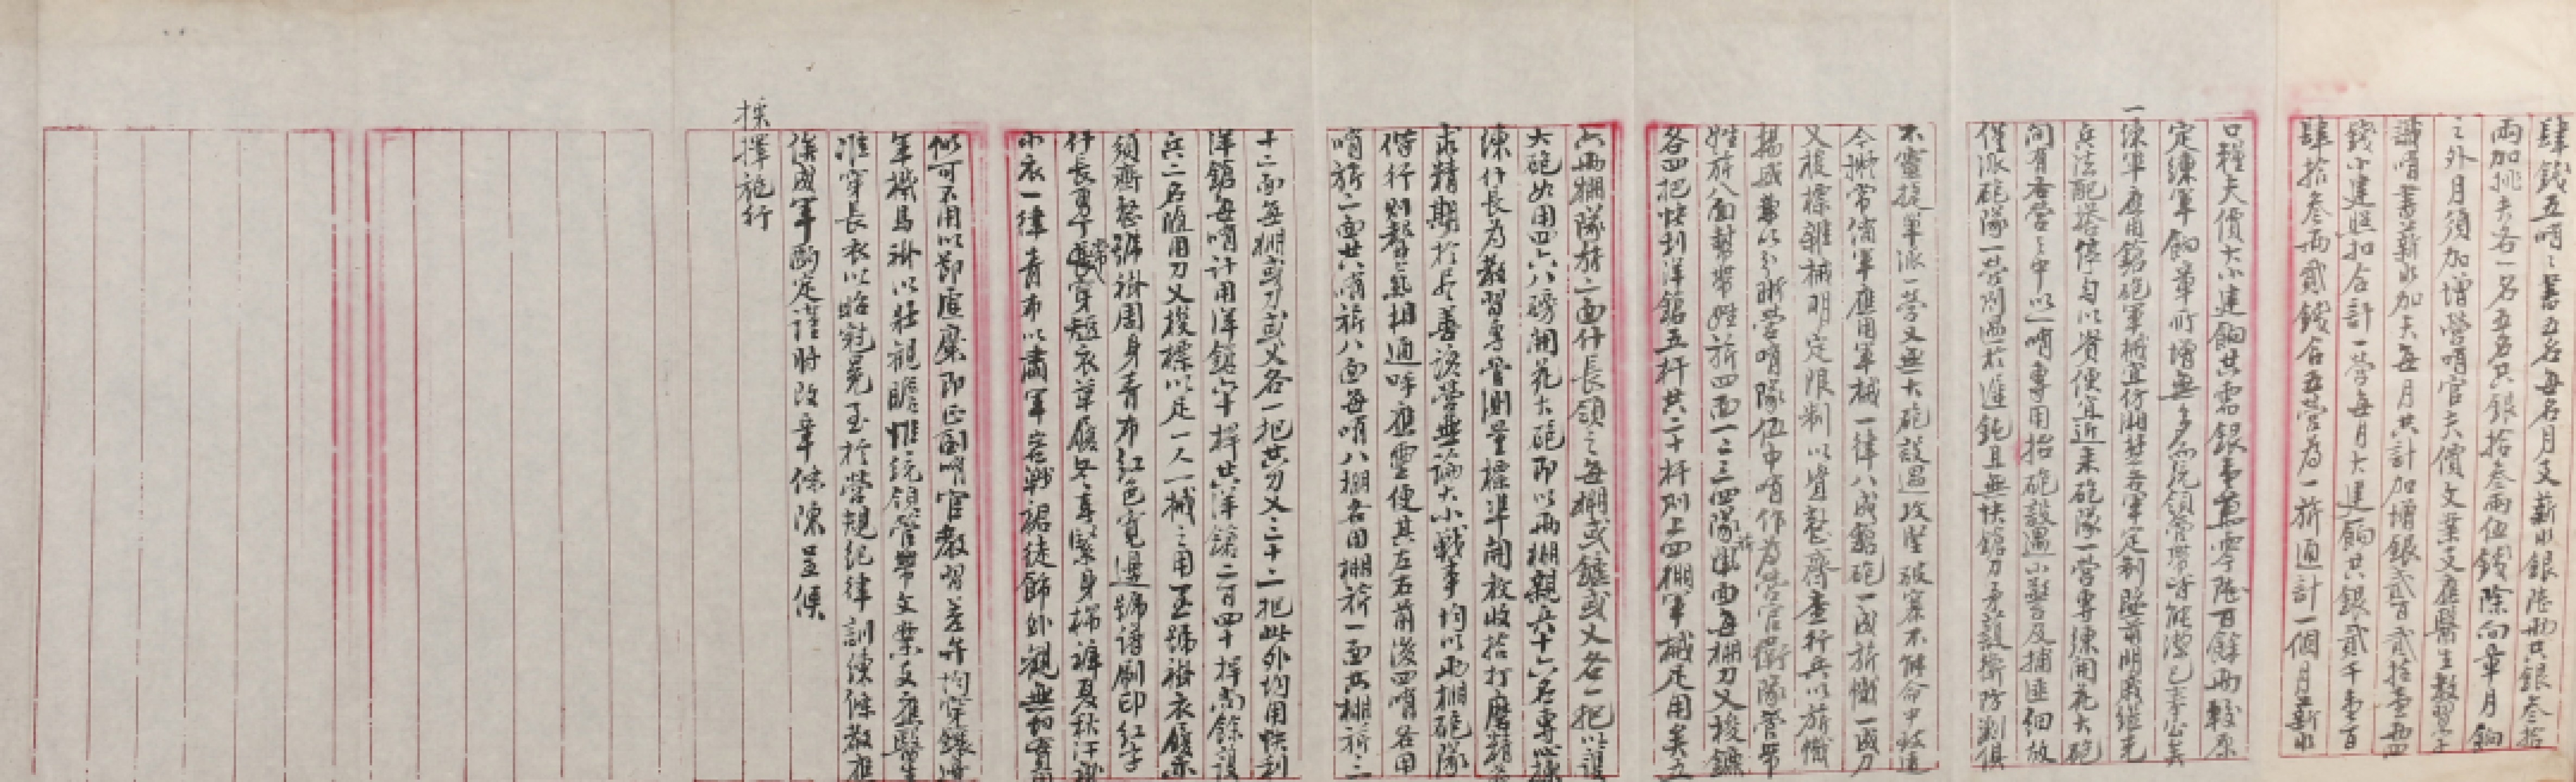 肆錢五哨書五名每名月支薪水銀陸兩共銀叁拾
兩加挑夫各一名五名共銀拾叁兩伍錢除向章月餉
之外月須加增營哨官夫價文案支應醫生教習正
識哨書薪水加夫每月共計加增銀貳百貳拾壹兩四
錢小建照扣合計一營每月大建餉共銀貳千壹百
肆拾叁兩貳錢合五營為一旂通計一個月薪水
口糧夫價大小建餉共需銀壹萬零陸百餘兩較原
定練軍餉章所增無多而統領營帶皆能潔己奉公其
一練軍應用鎗砲軍械宜仿湘楚各軍定制照前明戚繼光
兵法配搭停勻以資便宜近來砲隊一營專練開花大砲
間有各營之中以一哨專用抬砲設遇小警及捕匪細故
僅派砲隊一營則過於進鈍且無快鎗刀矛護衛防剿俱
不靈捷單派一營又無大砲設遇攻堅破寨不能命中致遠
今擬常備軍應用軍械一律八成鎗砲一成旂幟一成刀
又梭標雜械明定限制以資整齊查行兵以旂幟
揚威兼以分晰營哨隊伍中哨作為營官衛隊營帶
姓旂八面幫帶姓旂四面一二三四隊旂四面每棚刀又梭鑣
各四把快利洋鎗五杆共二十杆列上四棚軍械足用其五
六兩棚隊旂二面什長領之每棚或鑣或又各一把以護
大砲如用四六八磅開花大砲即以兩棚親兵十六名專心操
練什長為教習專管測量標準開放收拾打磨精益
求精期於盡善該營無論大小戰事均以兩棚砲隊
偕行則聲氣相通呼應靈便其左右前後四哨各用
哨旂二面共哨旂八面每哨八棚各用棚旂一面共棚旂三
十二面每棚或刀或又各一把共刀又三十二把此外均用快利
洋鎗每哨計用洋鎗六十捍共洋鎗二百四十捍尚餘護
兵二名隨用刀又梭標以足一人一械之用至號褂衣履亦
須齊整號褂周身青布紅色寬邊號補刷印紅字
什長勇丁常穿短衣草履冬春緊身棉褲夏秋汗衫
小衣一律青布以肅軍容戰裙徒飾外觀無切實用
似可不用以節虛糜即正副哨官教習差弁均穿鑲邊
軍機馬褂以壯觀瞻惟統領營帶文案支應醫生
准穿長衣以昭冠冕至於營規紀律訓練條教應
俟成軍酌定謹將改章條陳呈候
採擇施行